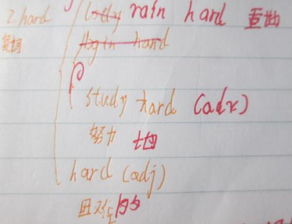 2. hard rain hard 重地
study hard (adv)
努力 地
hard (adj)
困难的